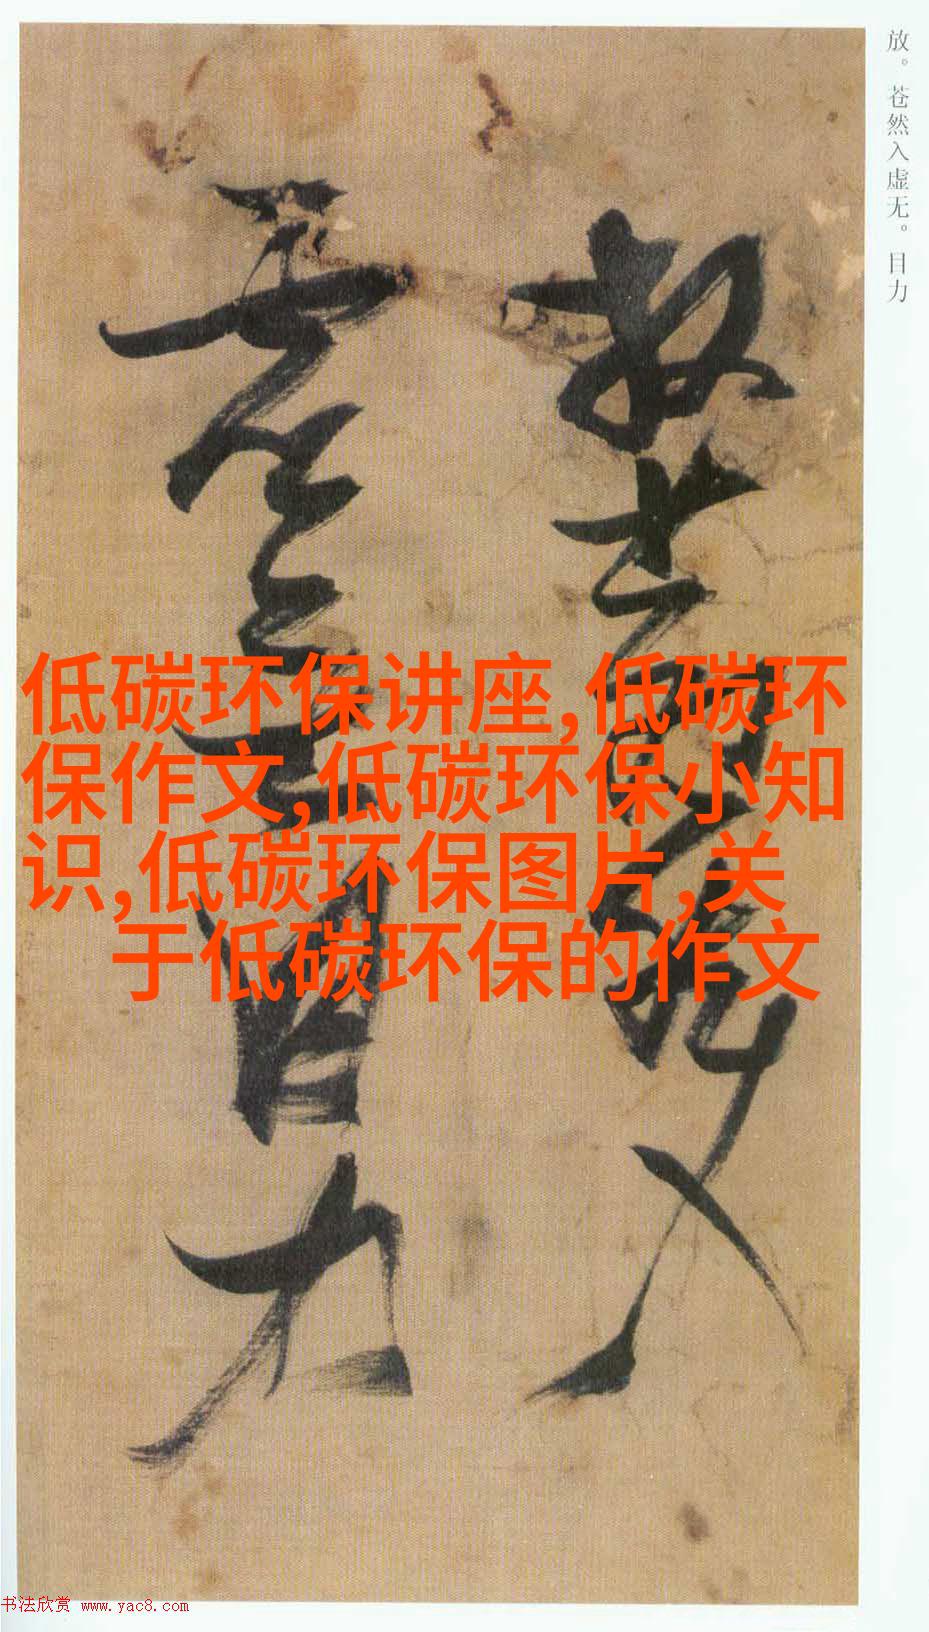 放。苍然入虚无。目力
放苍然入
虚无目力
低碳环保讲座,低碳环
保作文,低碳环保小知
识,低碳环保图片,关
于低碳环保的作文
书法欣赏 www.yac8.com